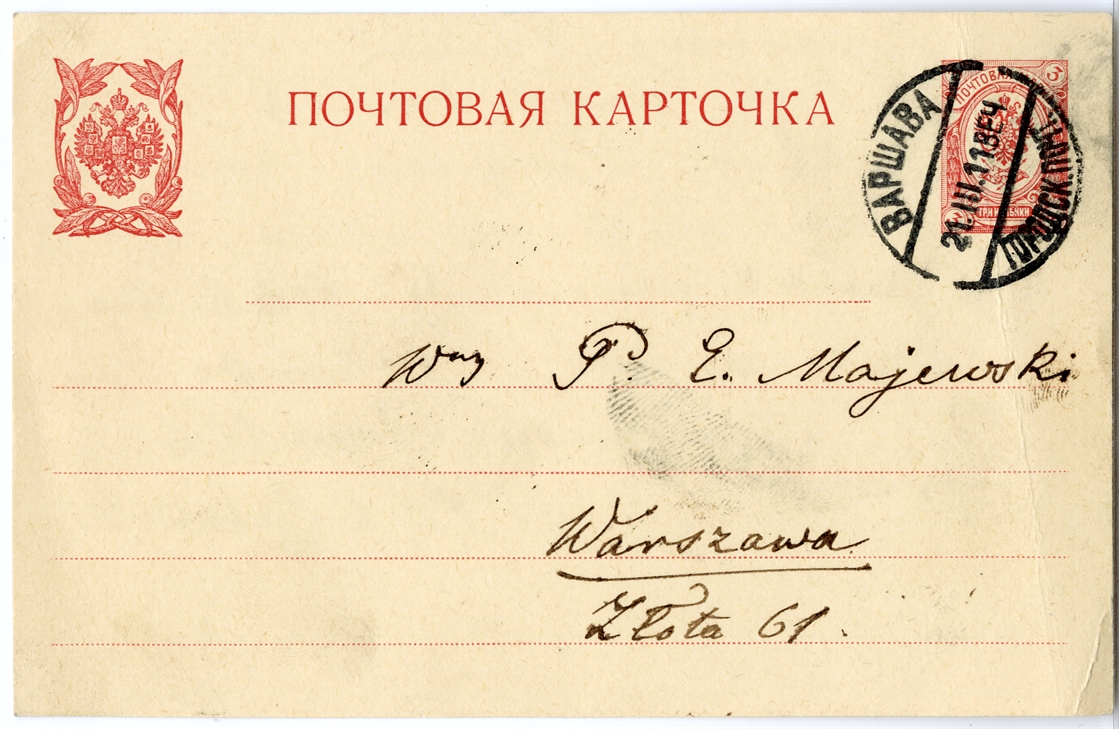 ПОЧТОВАЯ КАРТОЧКА
ПОЧТОВАЯ
3
3
ТРИ КОПѢЙКИ
ВАРШАВА
21.III.11 8ВЧ
ГОРОДСК.ПОЧТ.
Wny P. E. Majewski
Warszawa
Złota 61.